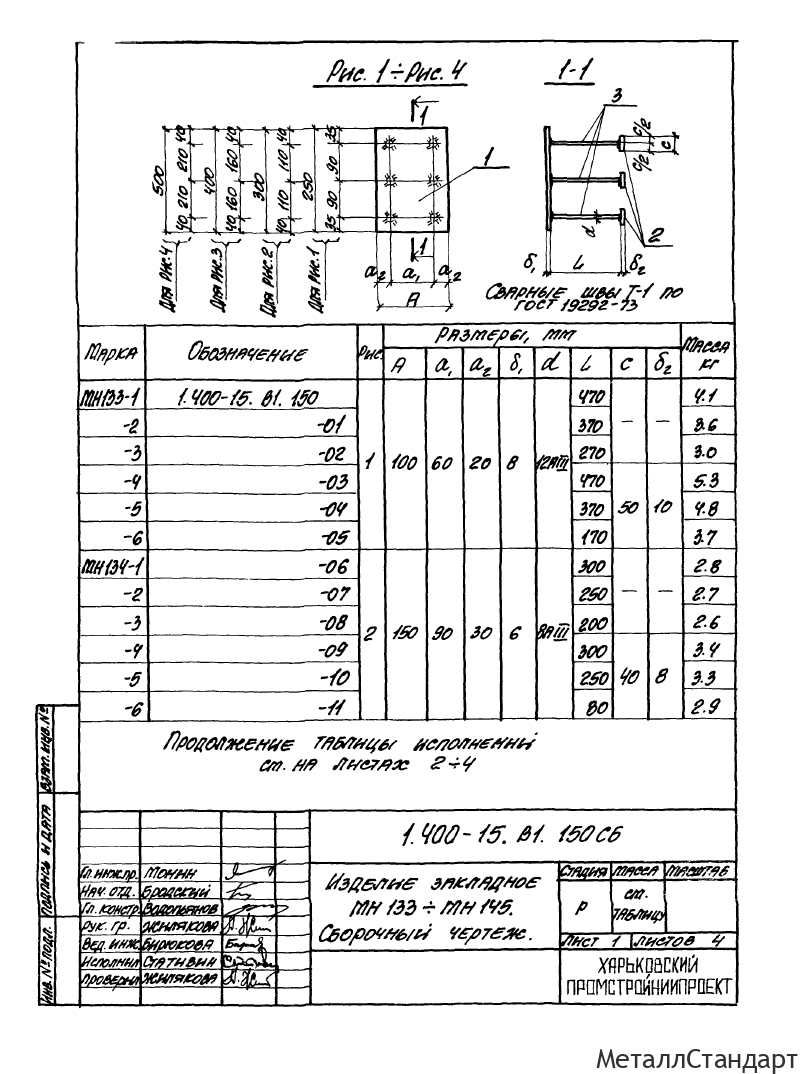 Рис. 1÷Рис. 4
1-1
1
1
1
3
2
40 210 210 40
500
40 160 160 40
400
40 110 110 40
300
35 90 90 35
250
35 90 90 35
Для рис.4
Для рис.3
Для рис.2
Для рис.1
a₂ a₁ a₂
A
c/2
c/2
c
d
δ₁ L δ₂
Сварные швы Т-1 по
ГОСТ 19292-73
Марка Обозначение Рис. Размеры, мм Масса кг
A a₁ a₂ δ₁ d L c δ₂
МН133-1 1.400-15. В1. 150 1 100 60 20 8 12АIII 470 — — 4.1
-2 -01 370 3.6
-3 -02 270 3.0
-4 -03 470 50 10 5.3
-5 -04 370 4.8
-6 -05 170 3.7
МН134-1 -06 2 150 90 30 6 8АIII 300 — — 2.8
-2 -07 250 2.7
-3 -08 200 2.6
-4 -09 300 40 8 3.4
-5 -10 250 3.3
-6 -11 80 2.9
Продолжение таблицы исполнений
см. на листах 2÷4
Взам. инв. №
Подпись и дата
Инв. № подл.
1.400-15. В1. 150СБ
Гл. инж. пр. Монин
Нач. отд. Бродский
Гл. констр. Водопьянов
Рук. гр. Жилякова
Вед. инж. Бирюкова
Исполнил Стативин
Проверил Жилякова
Изделие закладное
МН 133 ÷ МН 145.
Сборочный чертеж.
Стадия Масса Масштаб
Р см. таблицу
Лист 1 Листов 4
Харьковский
Промстройниипроект
МеталлСтандарт